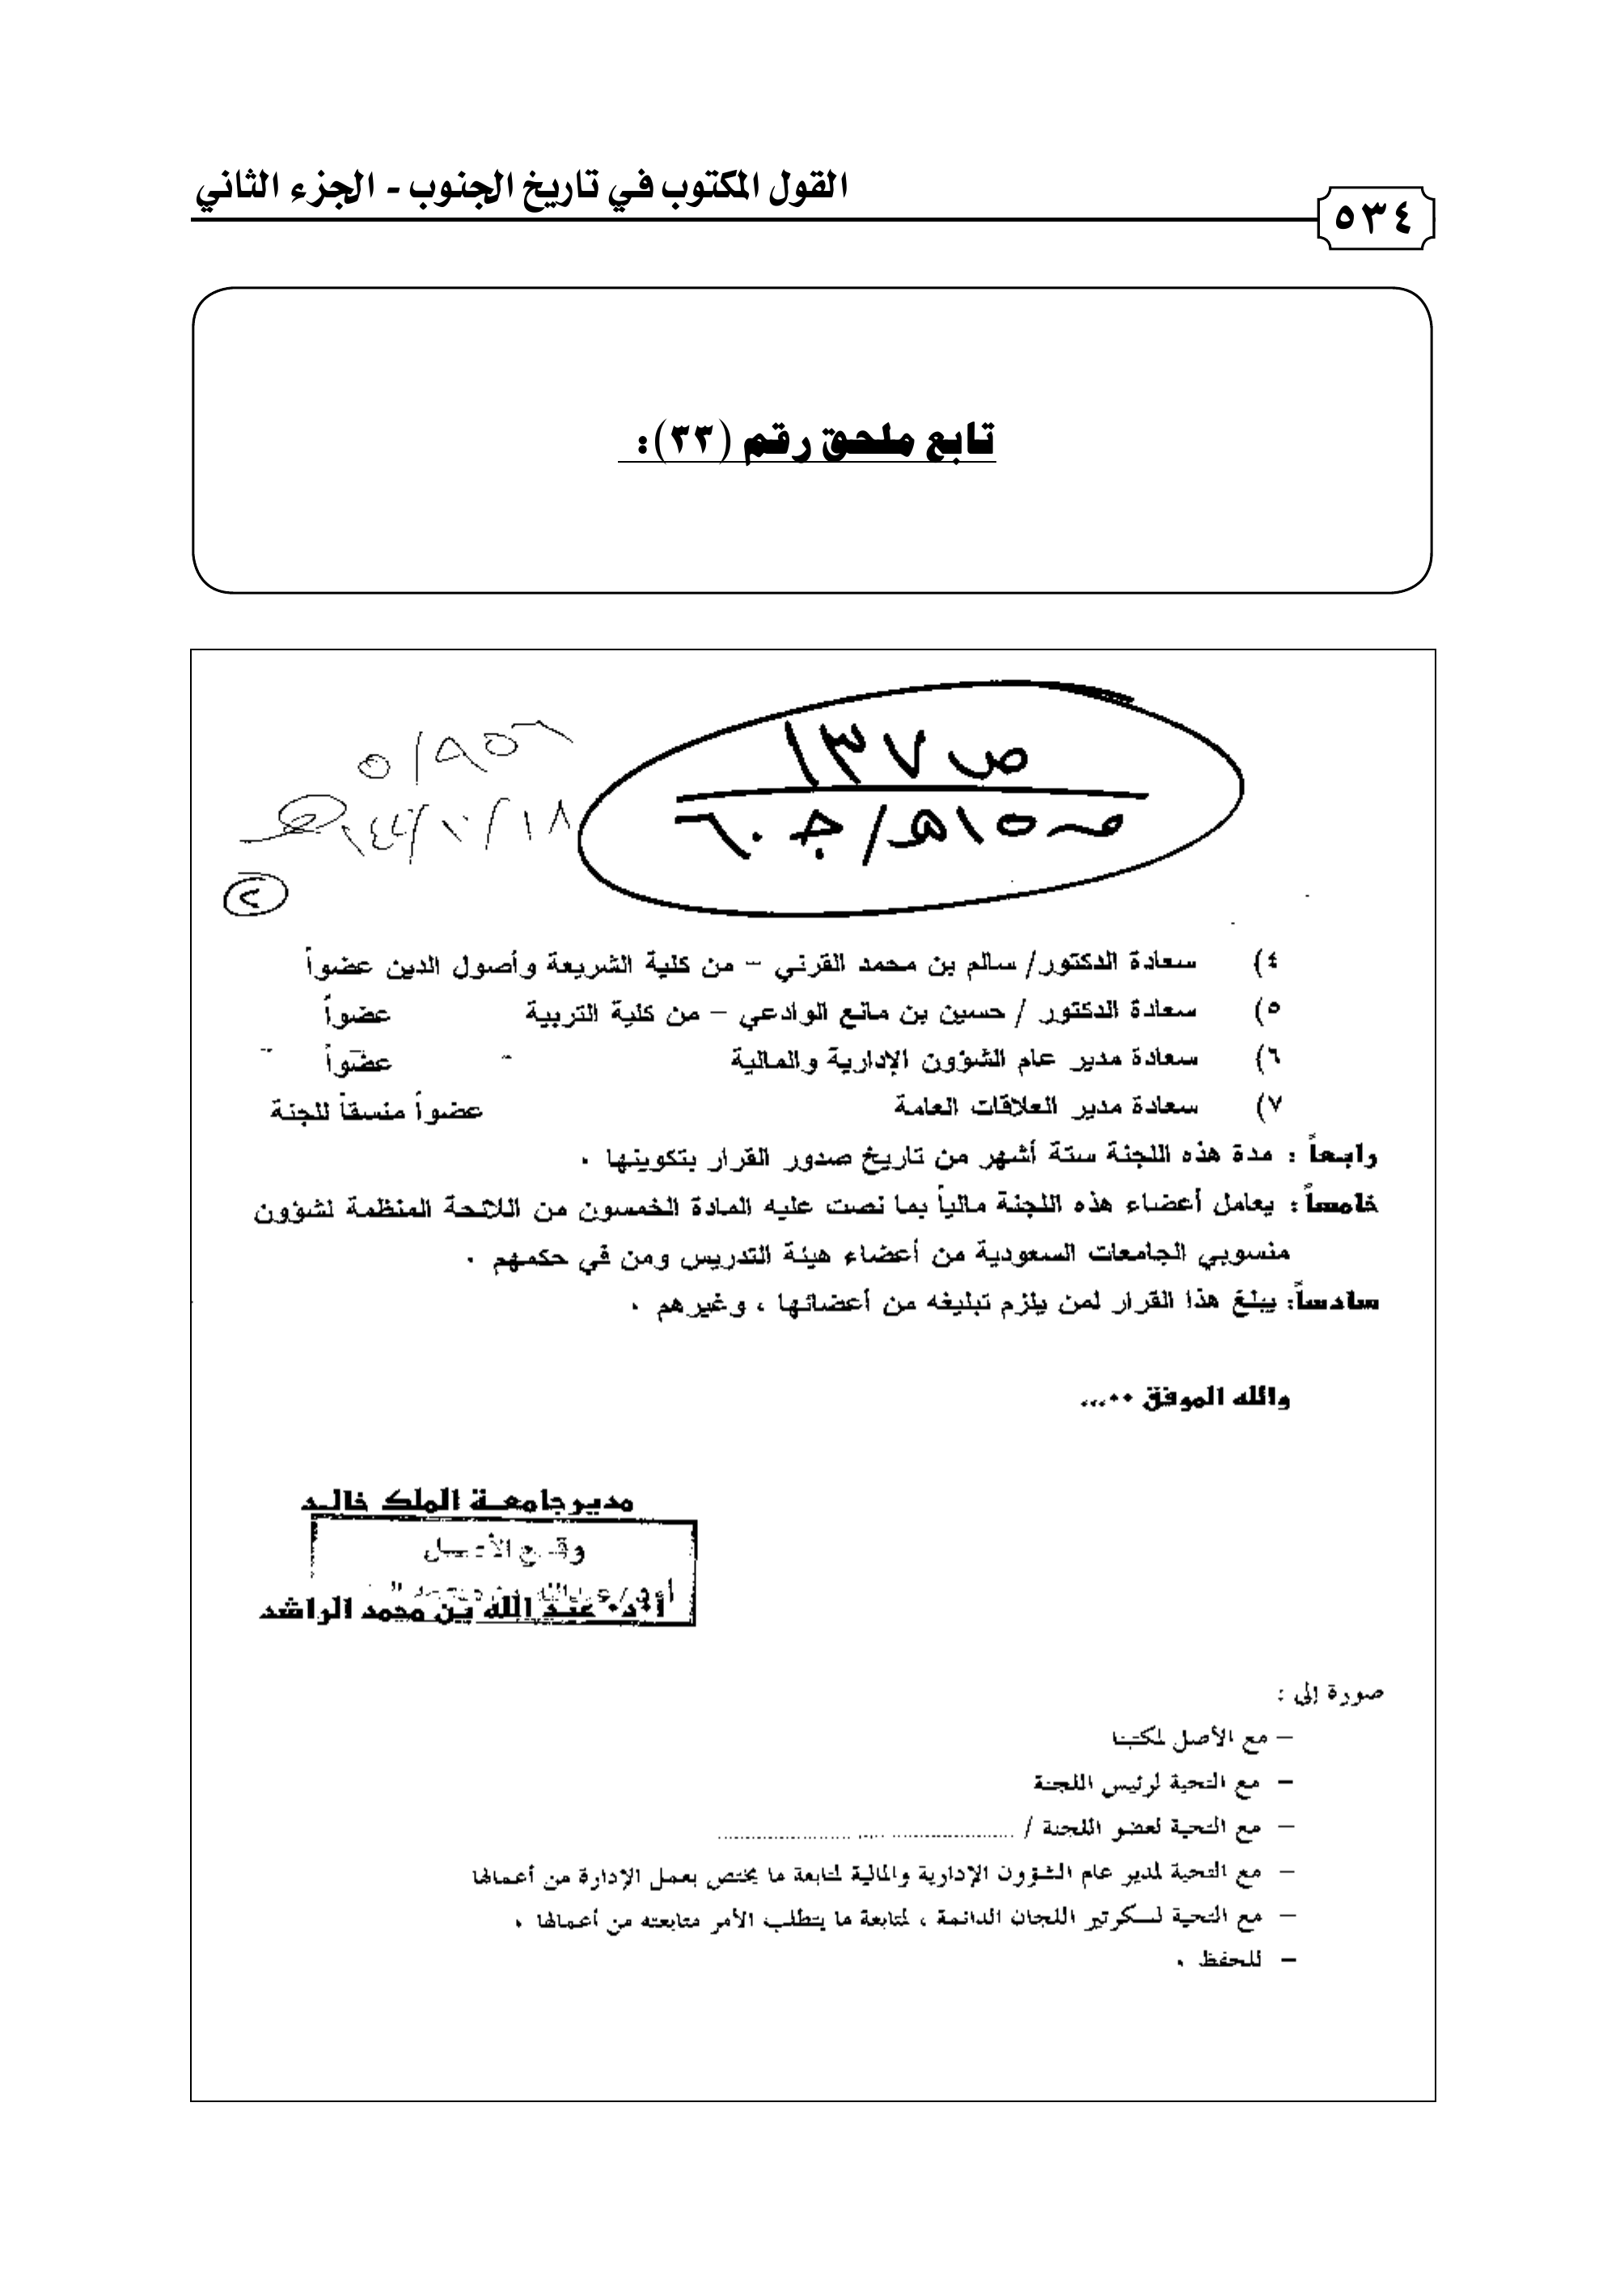 القول المكتوب في تاريخ الجنوب - الجزء الثاني
٥٣٤
تابع ملحق رقم (٣٣):
ص ١٣٧
٤) سعادة الدكتور/ سالم بن محمد القرني – من كلية الشريعة وأصول الدين عضواً
٥) سعادة الدكتور / حسين بن مانع الوادعي – من كلية التربية عضواً
٦) سعادة مدير عام الشؤون الإدارية والمالية عضواً
٧) سعادة مدير العلاقات العامة عضواً منسقاً للجنة
رابعاً : مدة هذه اللجنة ستة أشهر من تاريخ صدور القرار بتكوينها .
خامساً : يعامل أعضاء هذه اللجنة مالياً بما نصت عليه المادة الخمسون من اللائحة المنظمة لشؤون
منسوبي الجامعات السعودية من أعضاء هيئة التدريس ومن في حكمهم .
سادساً: يبلغ هذا القرار لمن يلزم تبليغه من أعضائها ، وغيرهم .
والله الموفق .....
مدير جامعة الملك خالد
وقع الأصل
أ.د. عبد الله بن محمد الراشد
صورة إلى :
– مع الأصل لمكتبنا
– مع التحية لرئيس اللجنة
– مع التحية لعضو اللجنة / ..............................
– مع التحية لمدير عام الشؤون الإدارية والمالية لمتابعة ما يختص بعمل الإدارة من أعمالها
– مع التحية لسكرتير اللجان الدائمة ، لمتابعة ما يتطلب الأمر متابعته من أعمالها .
– للحفظ .